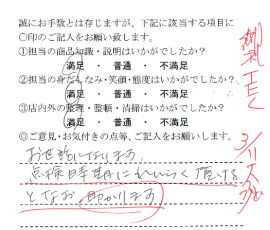 誠にお手数とは存じますが、下記に該当する項目に
○印のご記入をお願い致します。
①担当の商品知識・説明はいかがでしたか?
満足 ・ 普通 ・ 不満足
②担当の身だしなみ・笑顔・態度はいかがでしたか?
満足 ・ 普通 ・ 不満足
③店内外の整理・整頓・清掃はいかがでしたか?
満足 ・ 普通 ・ 不満足
◎ご意見・お気付きの点等、ご記入をお願いします。
お世話になります。
点検時期にれんらく頂ける
となお助かります。